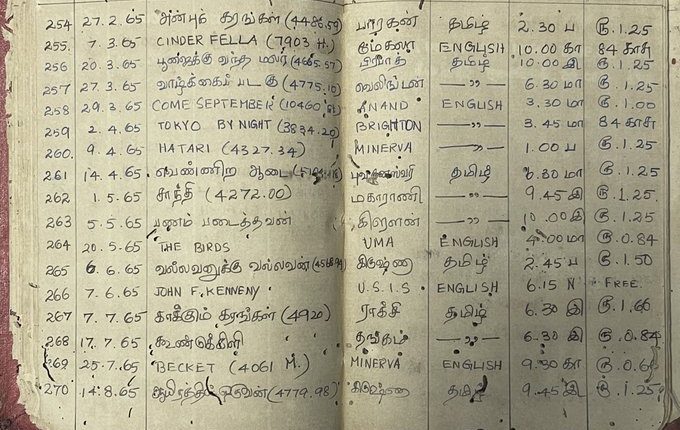 254 27.2.65 அன்புக் கரங்கள் (4486.59) பாரகன் தமிழ் 2.30 ப ரூ.1.25
255. 7.3.65 CINDER FELLA (7903 M.) ENGLISH 10.00 கா 84 காசு
256 20.3.65 பூஜைக்கு வந்த மலர் (4685.57) தமிழ் 10.00 இ ரூ.1.25
257 27.3.65 வாழ்க்கைப் படகு (4775.10) வெலிங்டன் —"— 6.30 மா ரூ.1.25
258 29.3.65 COME SEPTEMBER ANAND ENGLISH 3.30 மா ரூ.1.00
259 2.4.65 TOKYO BY NIGHT (3834.20) BRIGHTON —"— 3.45 மா 84 காசு
260. 9.4.65 HATARI (4327.34) MINERVA —"— 1.00 ப ரூ.1.25
261 14.4.65 வெண்ணிற ஆடை புவனேஸ்வரி தமிழ் 6.30 மா ரூ.1.25
262 1.5.65 சாந்தி (4272.00) மகாராணி —"— 9.45 இ ரூ.1.25
263 5.5.65 பணம் படைத்தவன் கிரௌன் —"— 10.00 இ ரூ.1.25
264 20.5.65 THE BIRDS UMA ENGLISH 4.00 மா ரூ.0.84
265 6.6.65 வல்லவனுக்கு வல்லவன் கிருஷ்ணா தமிழ் 2.45 ப ரூ.1.50
266 7.6.65 JOHN F. KENNENY U.S.I.S ENGLISH 6.15 N FREE.
267 7.7.65 காக்கும் கரங்கள் (4920) ராக்சி தமிழ் 6.30 இ ரூ.1.60
268 17.7.65 கூண்டுக்கிளி தங்கம் —"— 6.30 இ ரூ.0.84
269 25.7.65 BECKET (4061 M.) MINERVA ENGLISH 9.30 கா ரூ.0.6
270 14.8.65 ஆயிரத்தில் ஒருவன் (4779.98) கிருஷ்ணா தமிழ் 9.45 இ ரூ.1.25